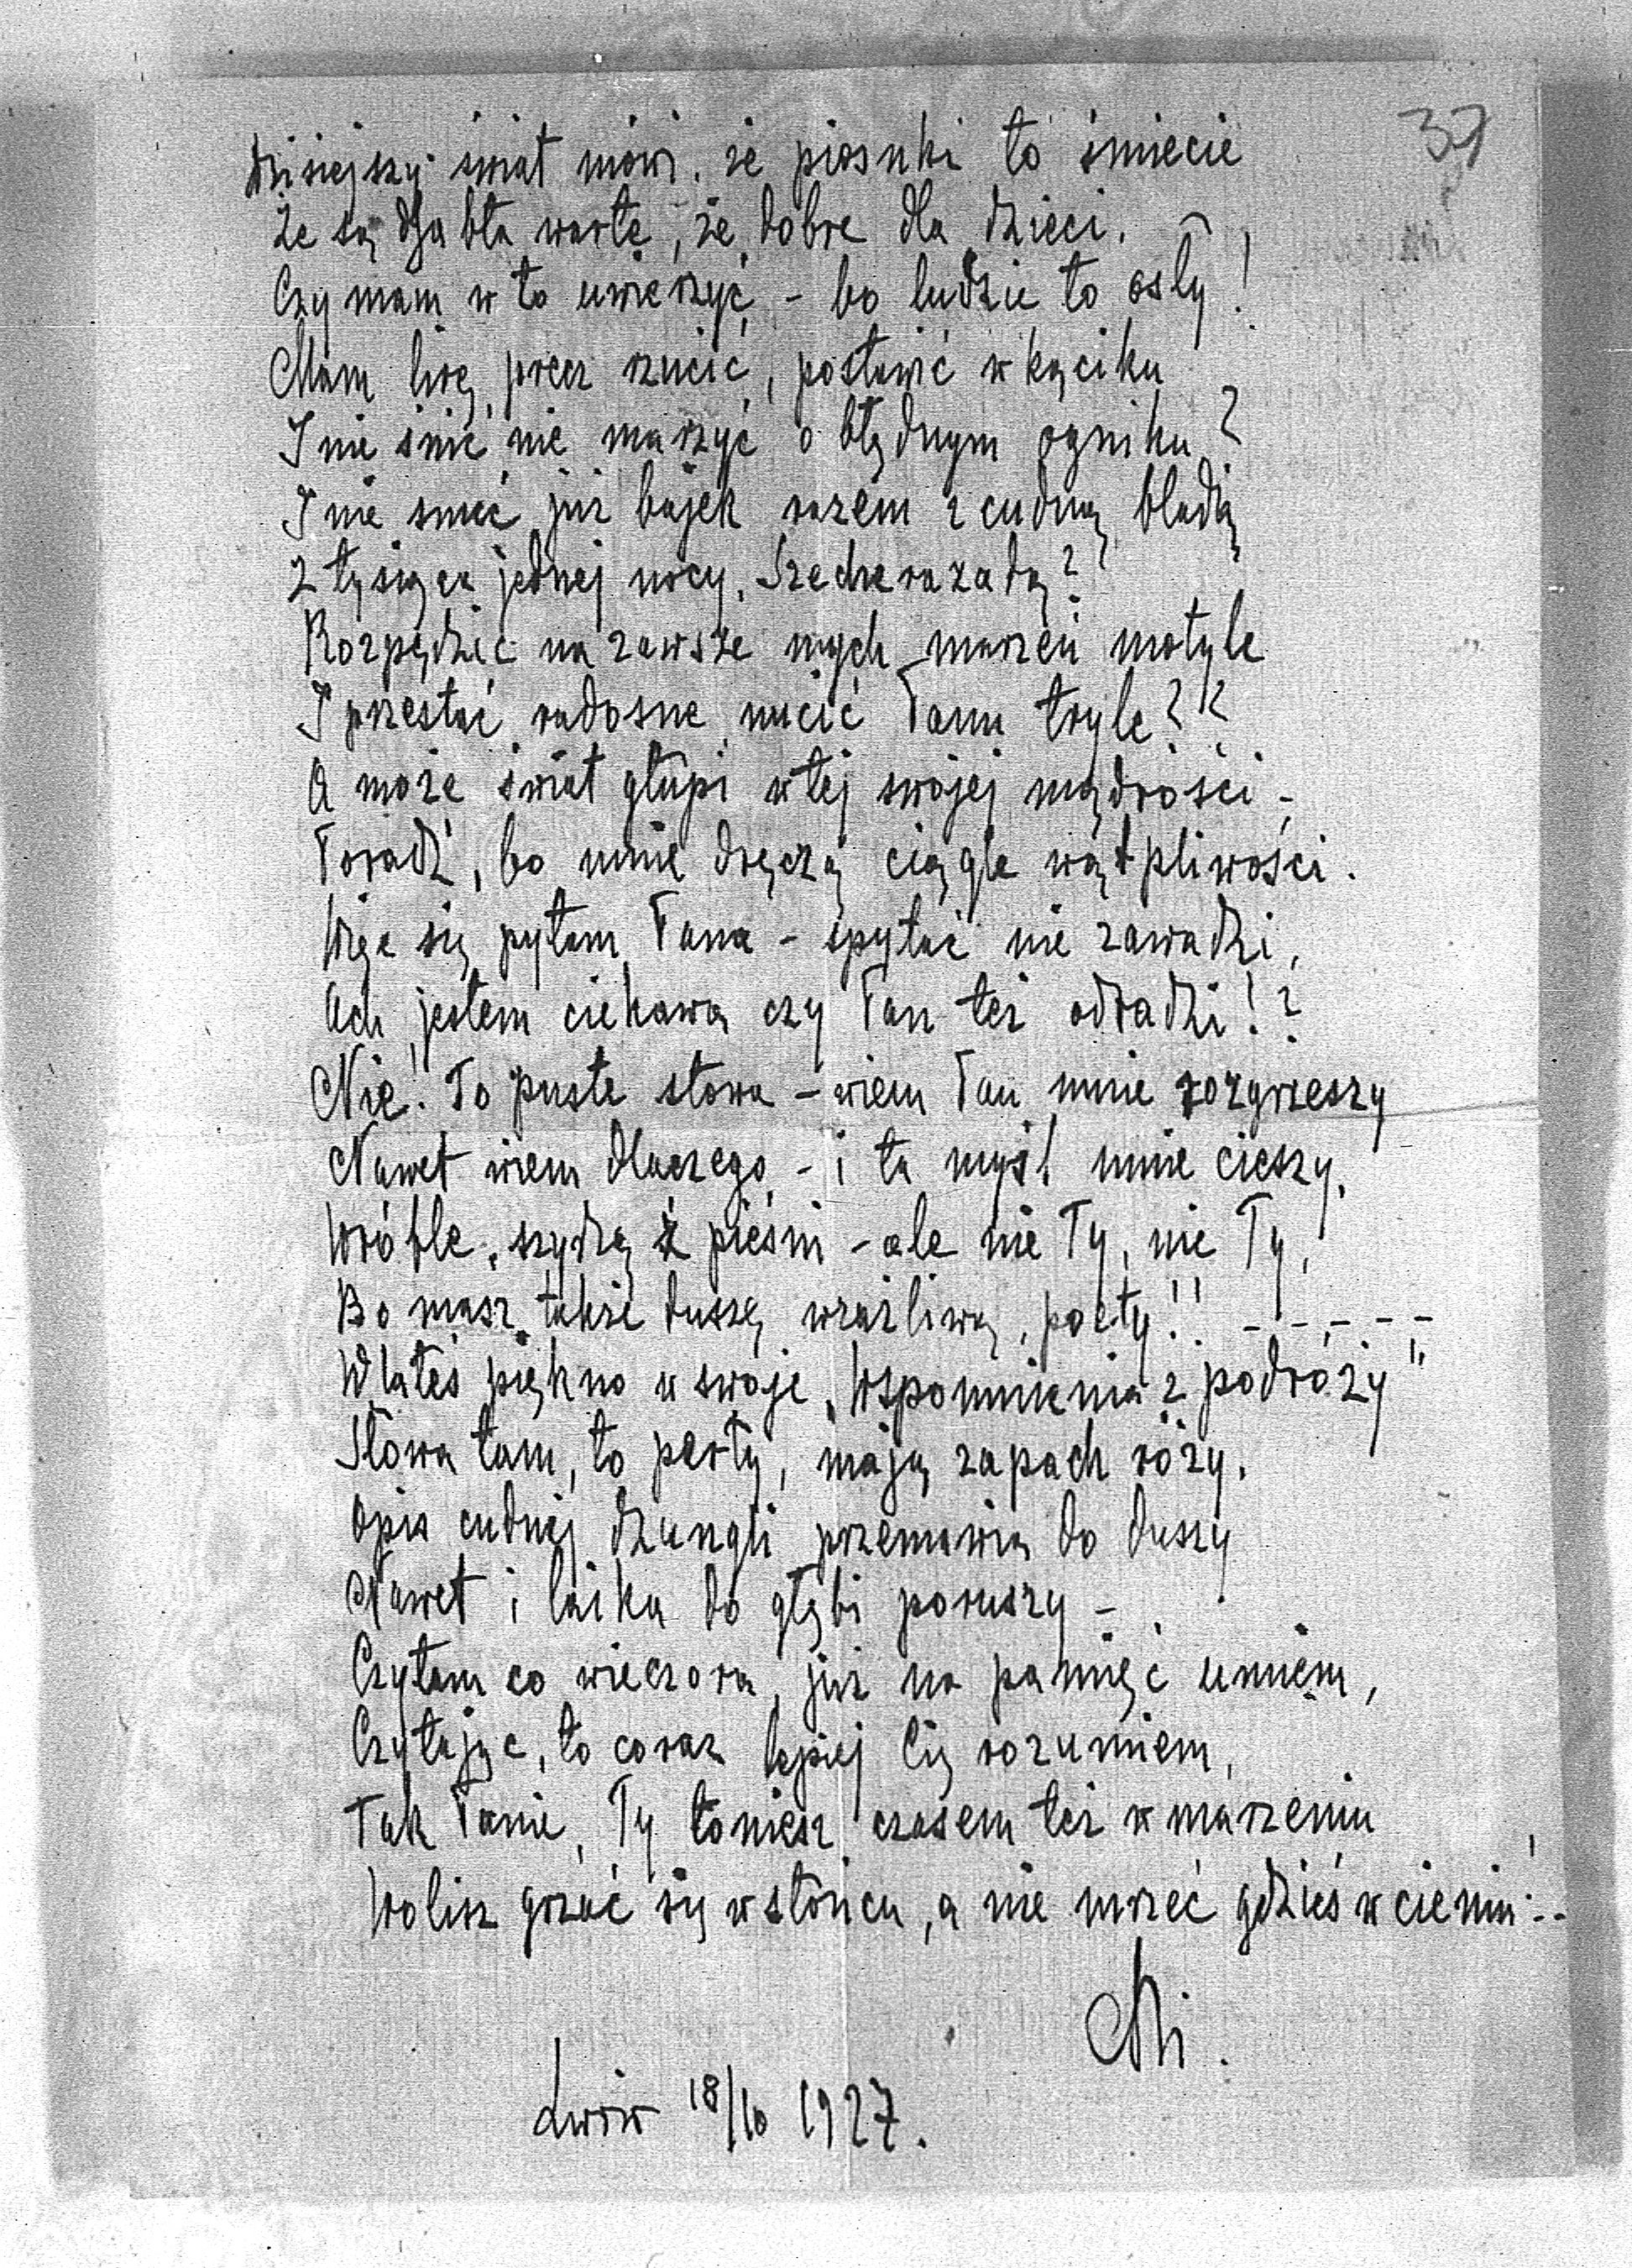 37
Dzisiejszy świat mówi, że piosnki to śmiecie
Że są djabła warte, że dobre dla dzieci.
Czy mam w to uwierzyć - bo ludzie to osły!
Mam lirę precz rzucić, postawić w kąciku
I nie śnić nie marzyć o błędnym ogniku?
I nie snuć już bajek razem z cudną bladą
Z tysiąca jednej nocy, Szecherazadą?
Rozpędzić na zawsze mych marzeń motyle
I przestać radosne nucić Panu tryle??
A może świat głupi w tej swojej mądrości -
Poradź, bo mnie dręczą ciągle wątpliwości.
Więc się pytam Pana - spytać nie zawadzi,
Ach jestem ciekawa czy Pan też odradzi!?
Nie! To puste słowa - wiem Pan mnie rozgrzeszy
Nawet wiem dlaczego - i ta myśl mnie cieszy,
Wróble szydzą z pieśni - ale nie Ty, nie Ty,
Bo masz także duszę wrażliwą, poety!! - - - - -
Wlałeś piękno w swoje „Wspomnienia z podróży"
Słowa tam, to perły, mają zapach róży.
Opis cudnej dżungli przemawia do duszy
Nawet i laika do głębi poruszy -
Czytam co wieczora, już na pamięć umiem,
Czytając, to coraz lepiej Cię rozumiem,
Tak Panie, Ty toniesz czasem też w marzeniu
Wolisz grzać się w słońcu, a nie mrzeć gdzieś w cieniu!..
Mi.
Lwów 18/10 1927.